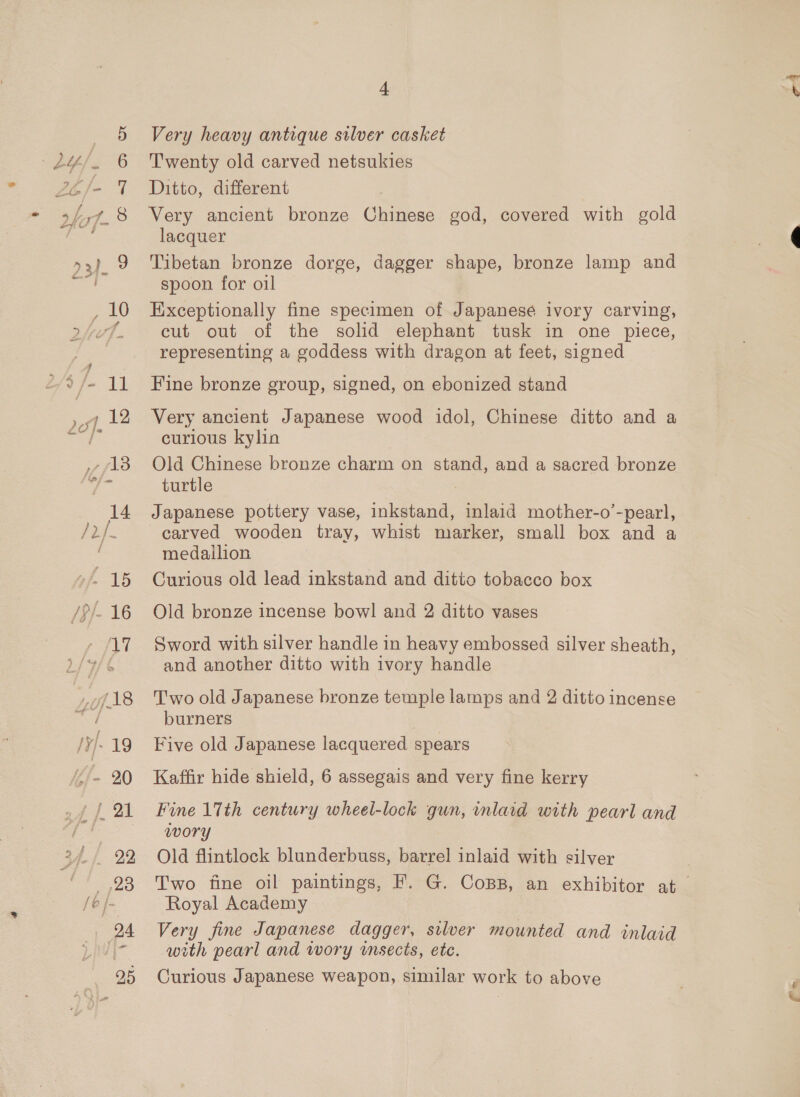 4
5 Very heavy antique silver casket
24/- 6 Twenty old carved netsukies
26/- 7 Ditto, different
8 Very ancient bronze Chinese god, covered with gold
lacquer
23/- 9 Tibetan bronze dorge, dagger shape, bronze lamp and
spoon for oil
10 Exceptionally fine specimen of Japanese ivory carving,
cut out of the solid elephant tusk in one piece,
representing a goddess with dragon at feet, signed
11 Fine bronze group, signed, on ebonized stand
12 Very ancient Japanese wood idol, Chinese ditto and a
curious kylin
13 Old Chinese bronze charm on stand, and a sacred bronze
turtle
14 Japanese pottery vase, inkstand, inlaid mother-o'-pearl,
12/- carved wooden tray, whist marker, small box and a
medallion
15 Curious old lead inkstand and ditto tobacco box
16 Old bronze incense bowl and 2 ditto vases
17 Sword with silver handle in heavy embossed silver sheath,
and another ditto with ivory handle
18 Two old Japanese bronze temple lamps and 2 ditto incense
burners
19 Five old Japanese lacquered spears
20 Kaffir hide shield, 6 assegais and very fine kerry
21 Fine 17th century wheel-lock gun, inlaid with pearl and
ivory
22 Old flintlock blunderbuss, barrel inlaid with silver
23 Two fine oil paintings, F. G. COBB, an exhibitor at
16/- Royal Academy
24 Very fine Japanese dagger, silver mounted and inlaid
with pearl and ivory insects, etc.
25 Curious Japanese weapon, similar work to above